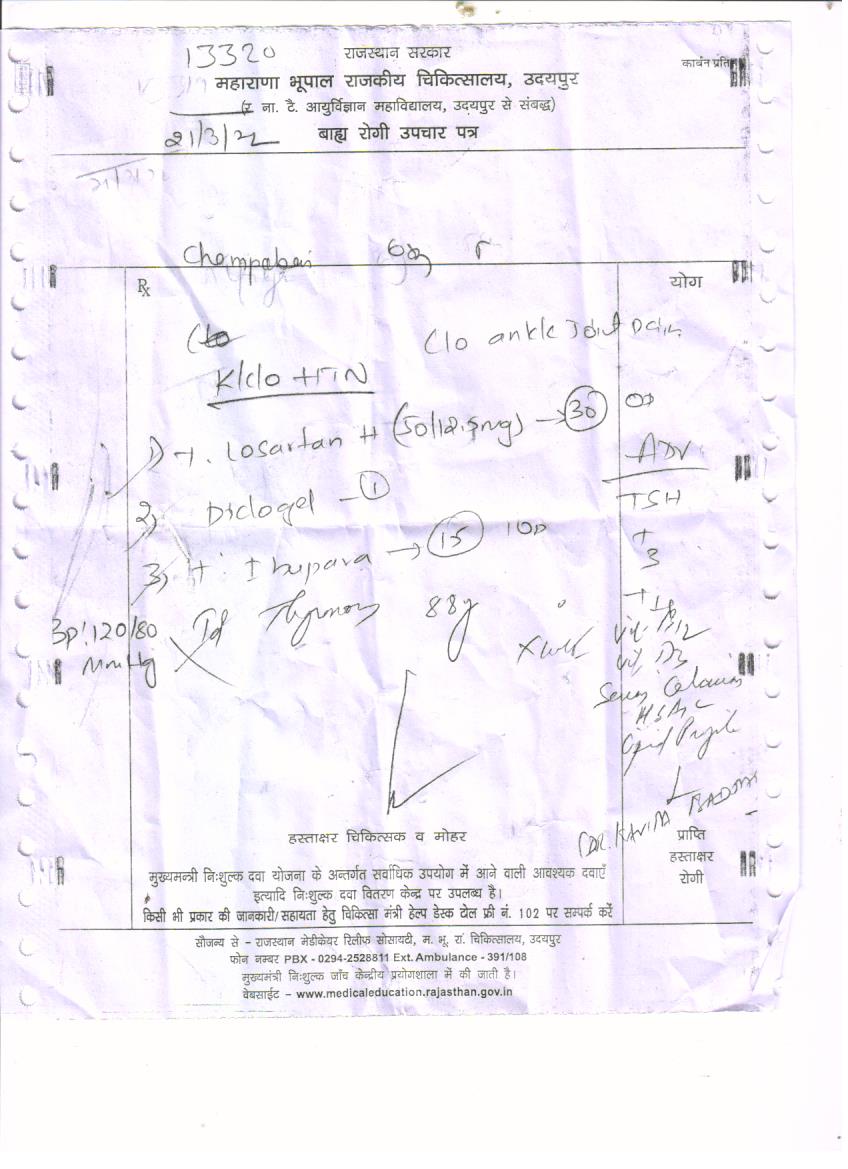 13320
राजस्थान सरकार
कार्बन प्रति
महाराणा भूपाल राजकीय चिकित्सालय, उदयपुर
(र. ना. टै. आयुर्विज्ञान महाविद्यालय, उदयपुर से संबद्ध)
21/3/22
बाह्य रोगी उपचार पत्र
Champabai
Rx
योग
C/o
C/o ankle Joint Pain
K/c/o HTN
1) T. Losartan H (50/12.5mg) → 30 OD
ADV
2) Diclogel - 1
TSH
3) T. Ibupara → 15
T3
T4
BP: 120/80
mmHg
88
Vit B12
Vit D3
HbA1c
Lipid Profile
(DR. KAVITA
हस्ताक्षर चिकित्सक व मोहर
प्राप्ति
हस्ताक्षर
रोगी
मुख्यमन्त्री निःशुल्क दवा योजना के अन्तर्गत सर्वाधिक उपयोग में आने वाली आवश्यक दवाएँ
इत्यादि निःशुल्क दवा वितरण केन्द्र पर उपलब्ध है।
किसी भी प्रकार की जानकारी/सहायता हेतु चिकित्सा मंत्री हेल्प डेस्क टोल फ्री नं. 102 पर सम्पर्क करें
सौजन्य से - राजस्थान मेडीकेयर रिलीफ सोसायटी, म. भू. रा. चिकित्सालय, उदयपुर
फोन नम्बर PBX - 0294-2528811 Ext. Ambulance - 391/108
मुख्यमंत्री निःशुल्क जाँच केन्द्रीय प्रयोगशाला में की जाती है।
वेबसाईट - www.medicaleducation.rajasthan.gov.in